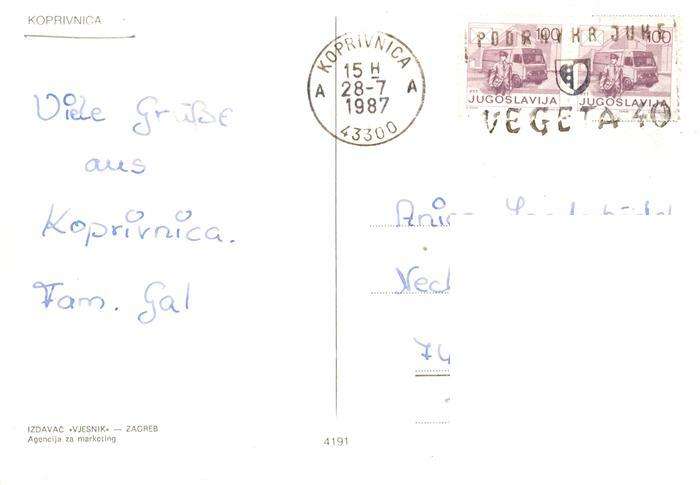 KOPRIVNICA
KOPRIVNICA
15 H
A 28-7 A
1987
43300
PODRAVKA JUHE
100 100
JUGOSLAVIJA JUGOSLAVIJA
VEGETA 40
Viele Grüße
aus
Koprivnica.
Fam. Gal
74
IZDAVAČ »VJESNIK« — ZAGREB
Agencija za marketing
4191